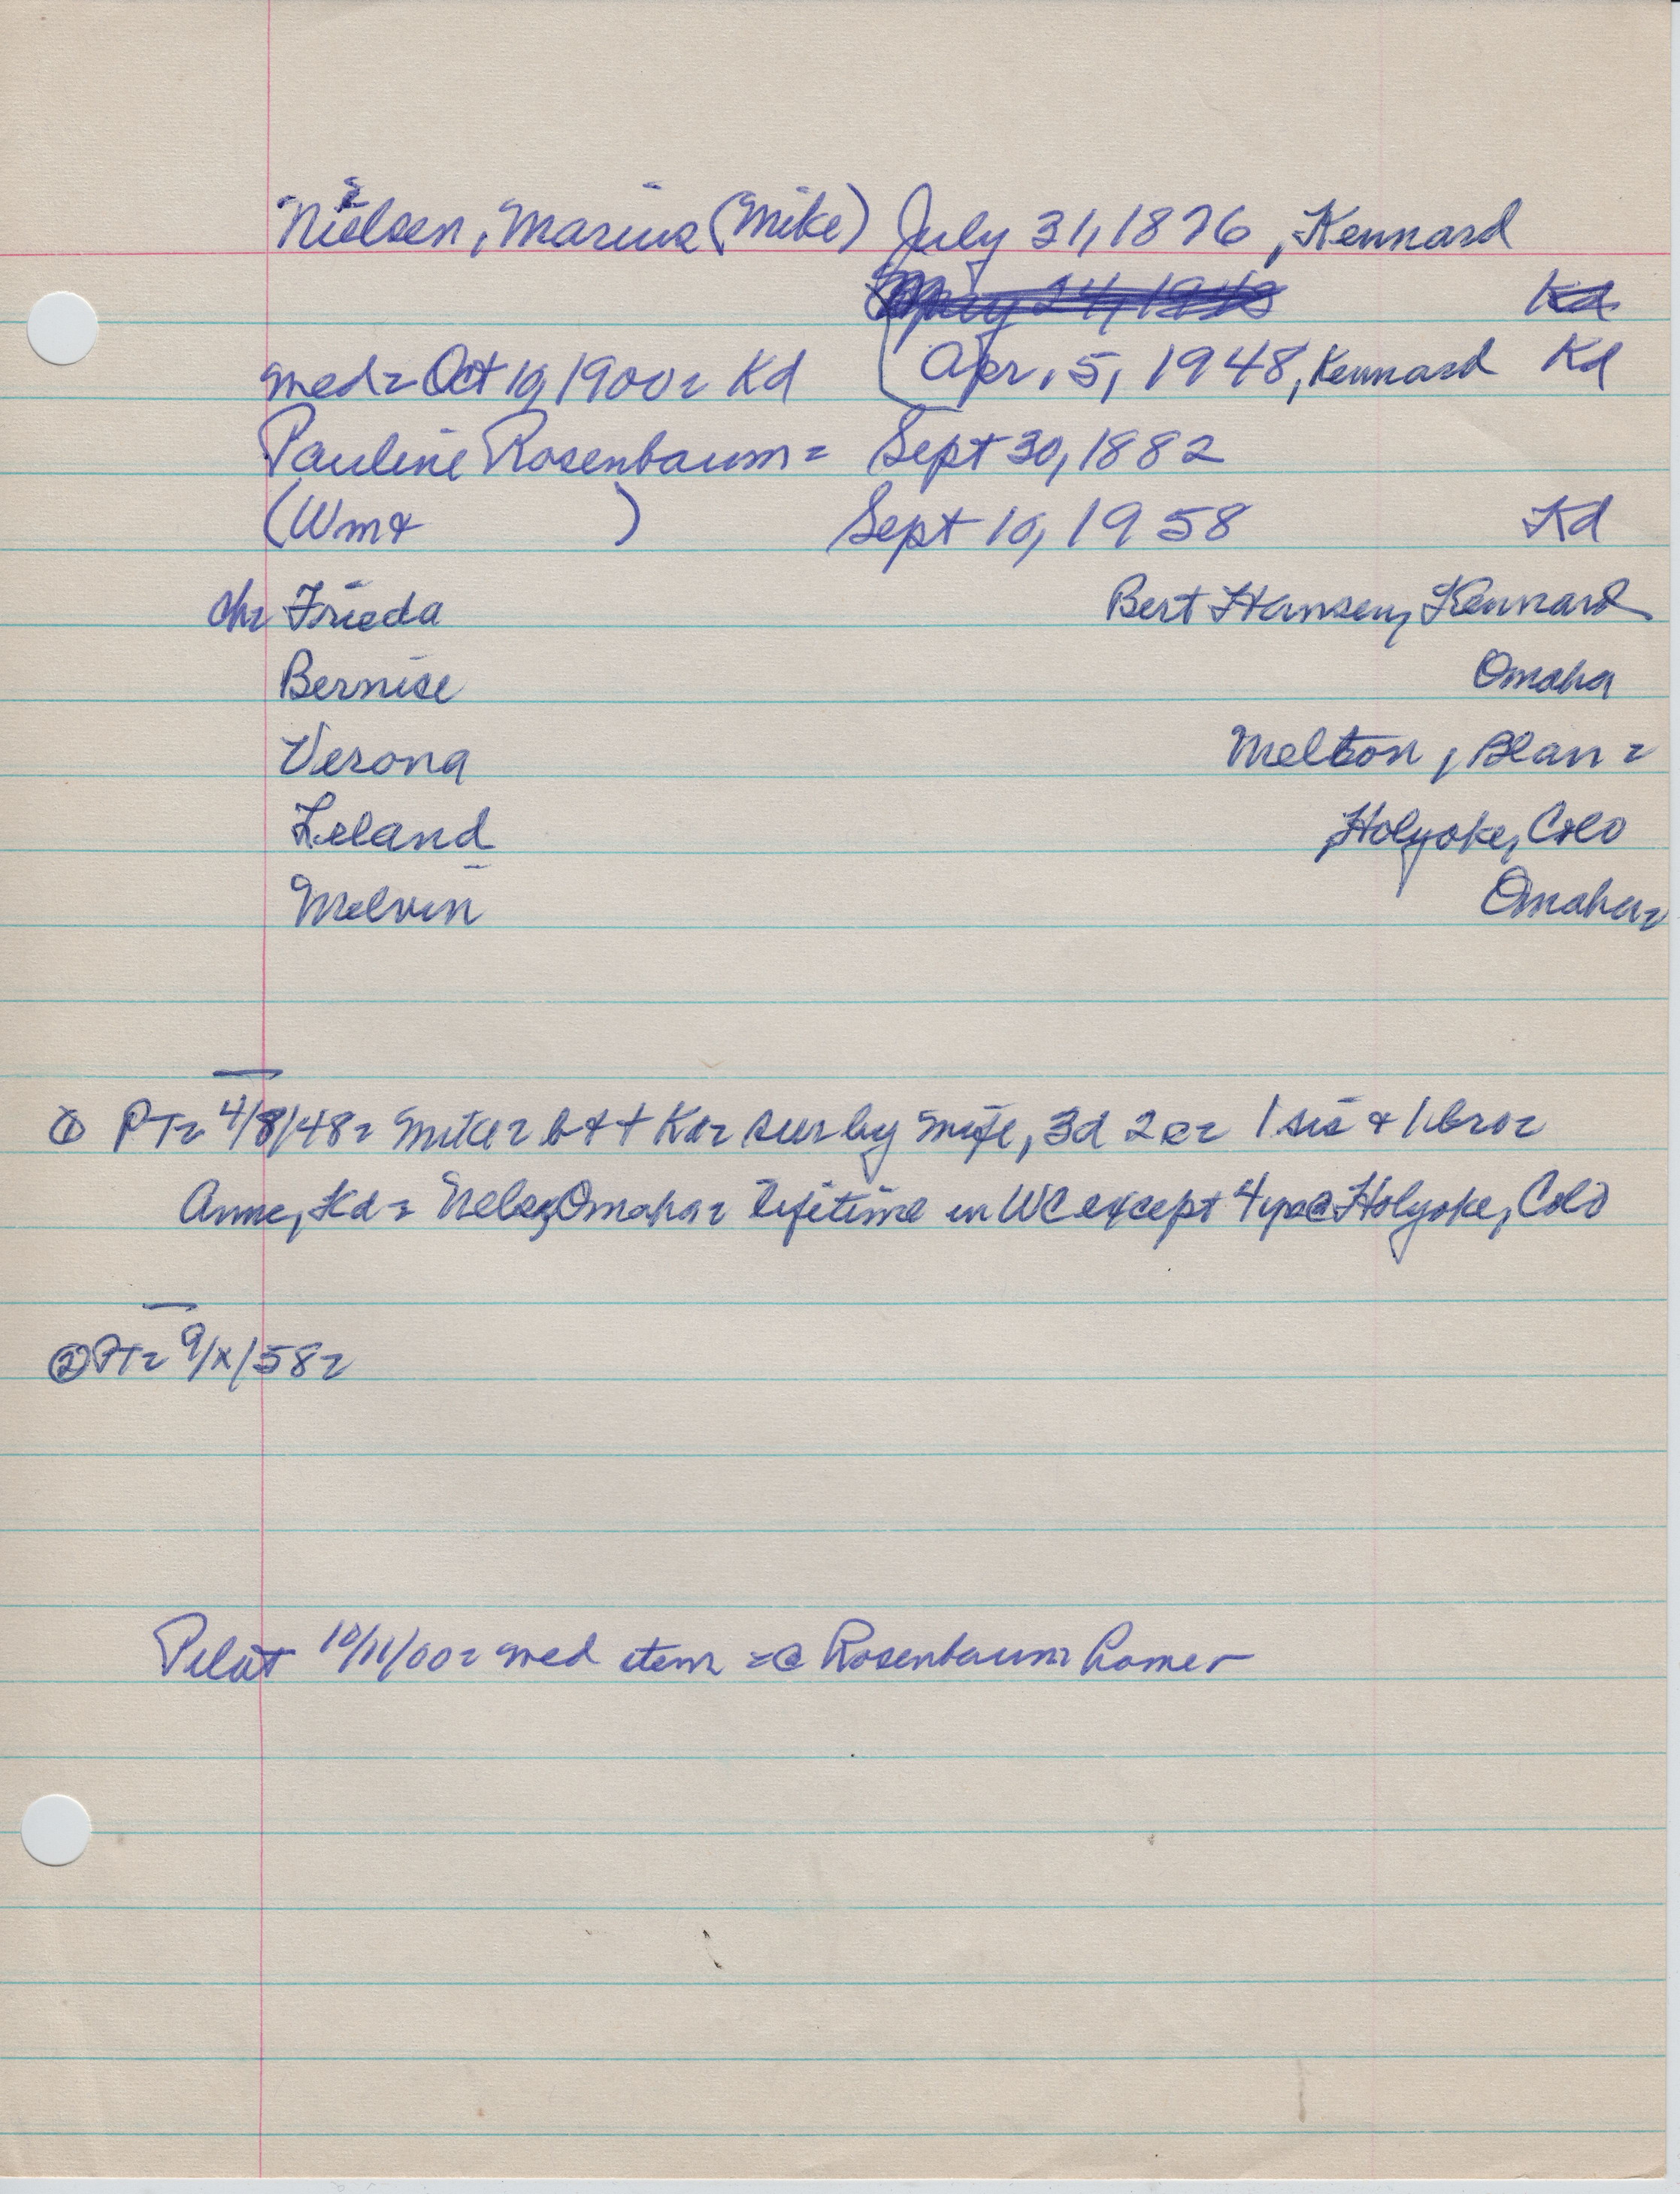 Nielsen, Marius (Mike) July 31, 1876, Kennard
May 24, 1948 Kd
med= Oct 10, 1900= Kd Apr. 5, 1948, Kennard Kd
Pauline Rosenbaum= Sept 30, 1882
(Wm & ) Sept 10, 1958 Kd
ch= Frieda Bert Hansen, Kennard
Bernise Omaha
Verona Melton, Blair=
Leland Holyoke, Colo
Melvin Omaha=
① PT= 4/8/48= Mike= b + + Kd= sur by wife, 3d 2s= 1 sis & 1 bro=
Anne, Kd= Nels, Omaha= lifetime in WC except 4 yrs @ Holyoke, Colo
② PT= 9/x/58=
Pilot 10/11/00= med item =@ Rosenbaum home=